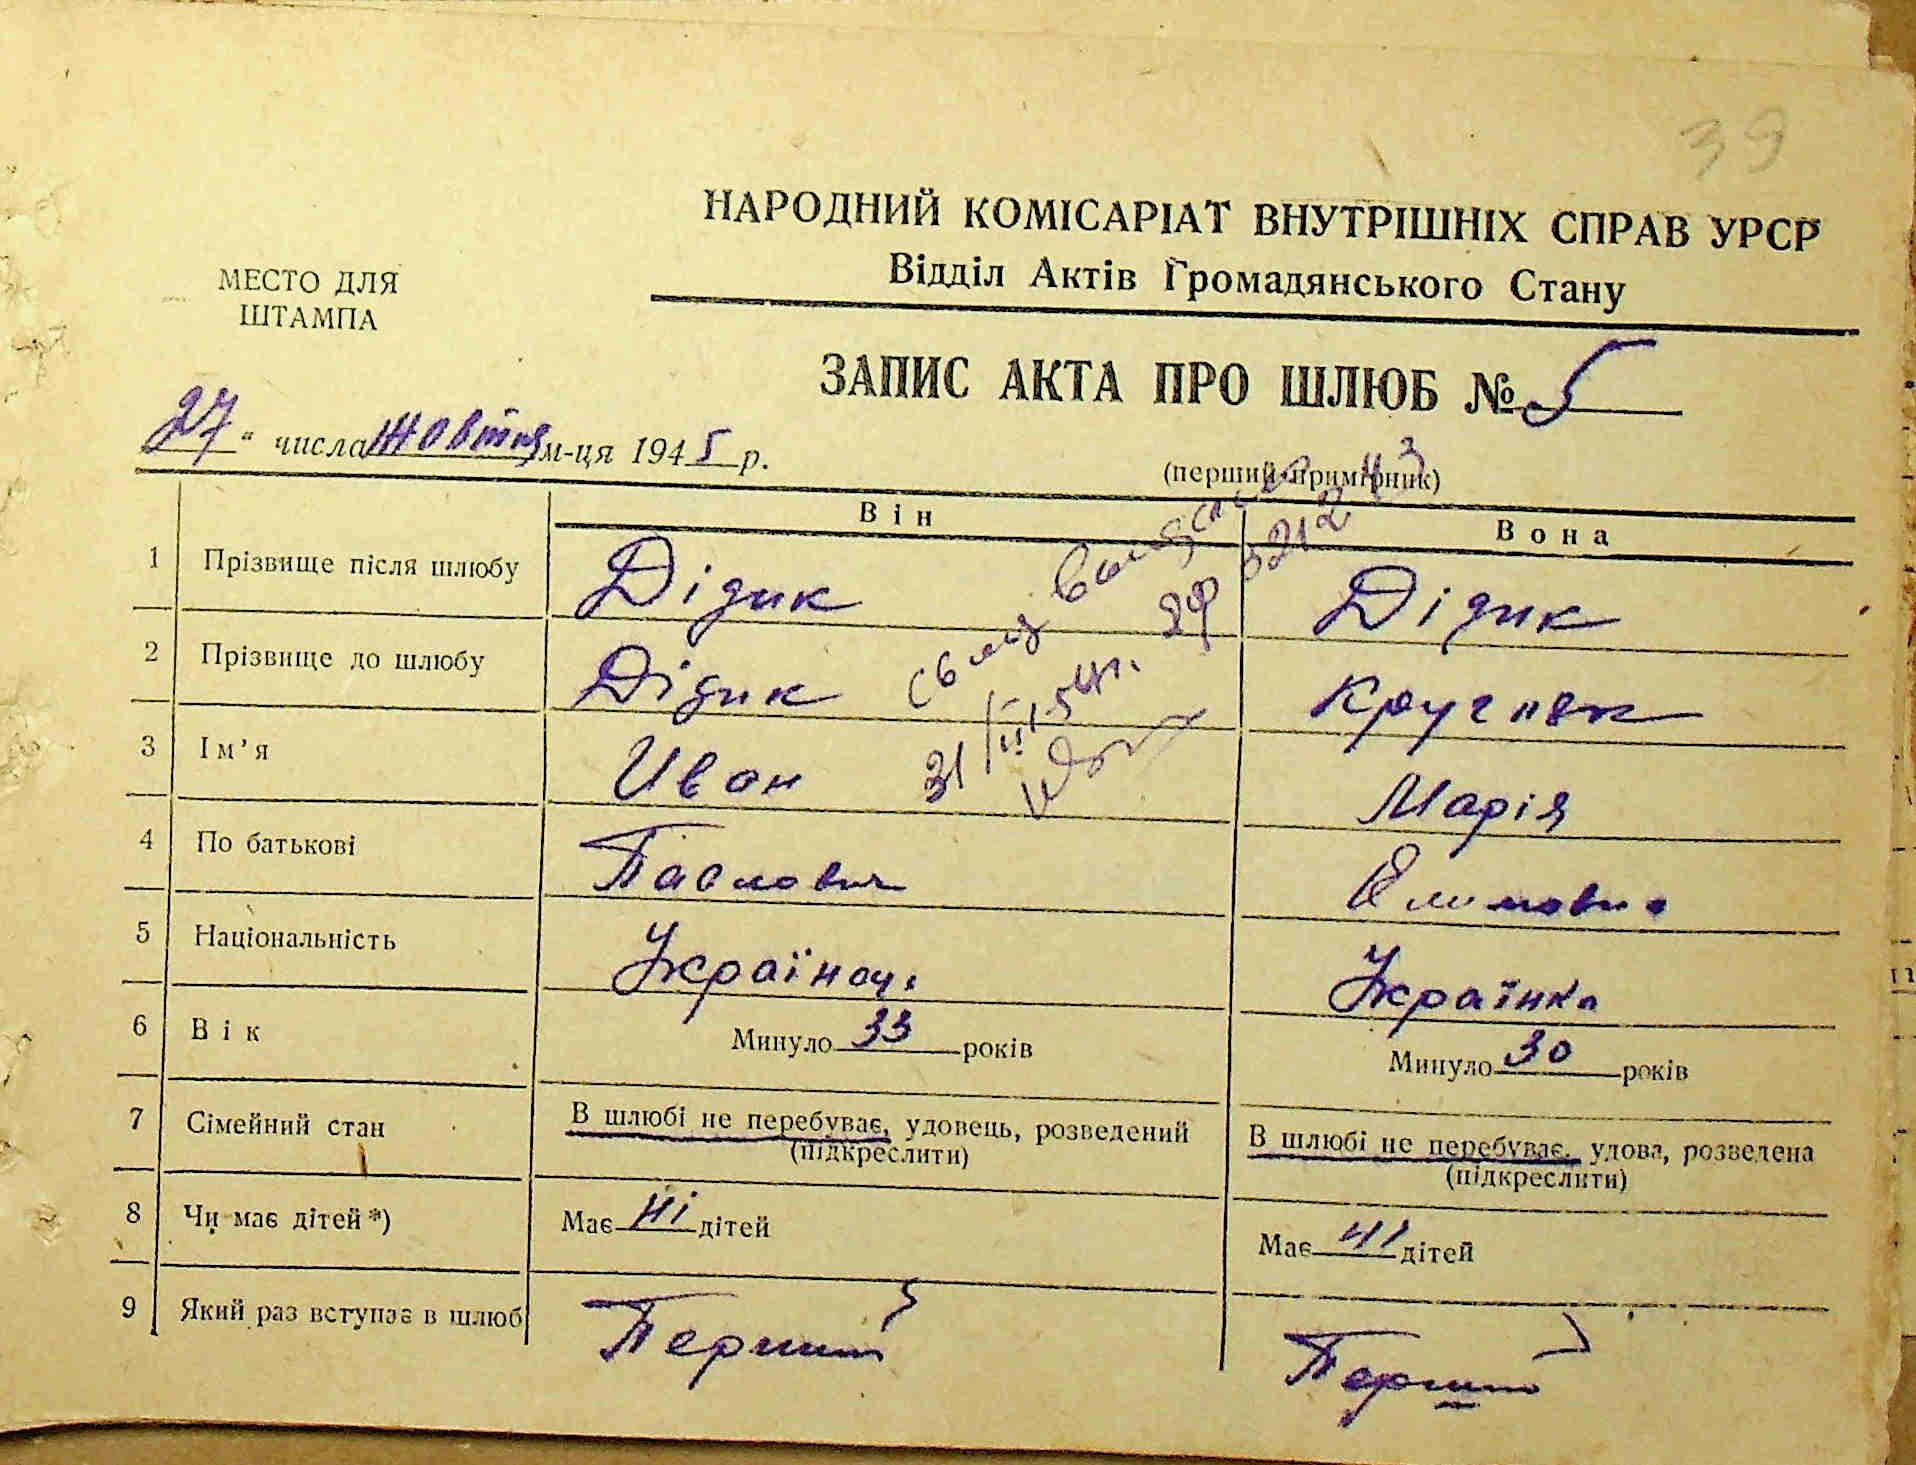 39
НАРОДНИЙ КОМІСАРІАТ ВНУТРІШНІХ СПРАВ УРСР
Відділ Актів Громадянського Стану
МЕСТО ДЛЯ
ШТАМПА
ЗАПИС АКТА ПРО ШЛЮБ № 5
27 " числа жовтня м-ця 1945 р.
(перший примірник)
Він Вона
1 Прізвище після шлюбу Дідик Дідик
2 Прізвище до шлюбу Дідик Кругляк
3 Ім'я Иван Марія
4 По батькові Павлович
5 Національність Українец Українка
6 Вік Минуло 33 років Минуло 30 років
7 Сімейний стан В шлюбі не перебуває, удовець, розведений В шлюбі не перебуває, удова, розведена
(підкреслити) (підкреслити)
8 Чи має дітей *) Має ні дітей Має ні дітей
9 Який раз вступає в шлюб Перший Перший
31/III 54